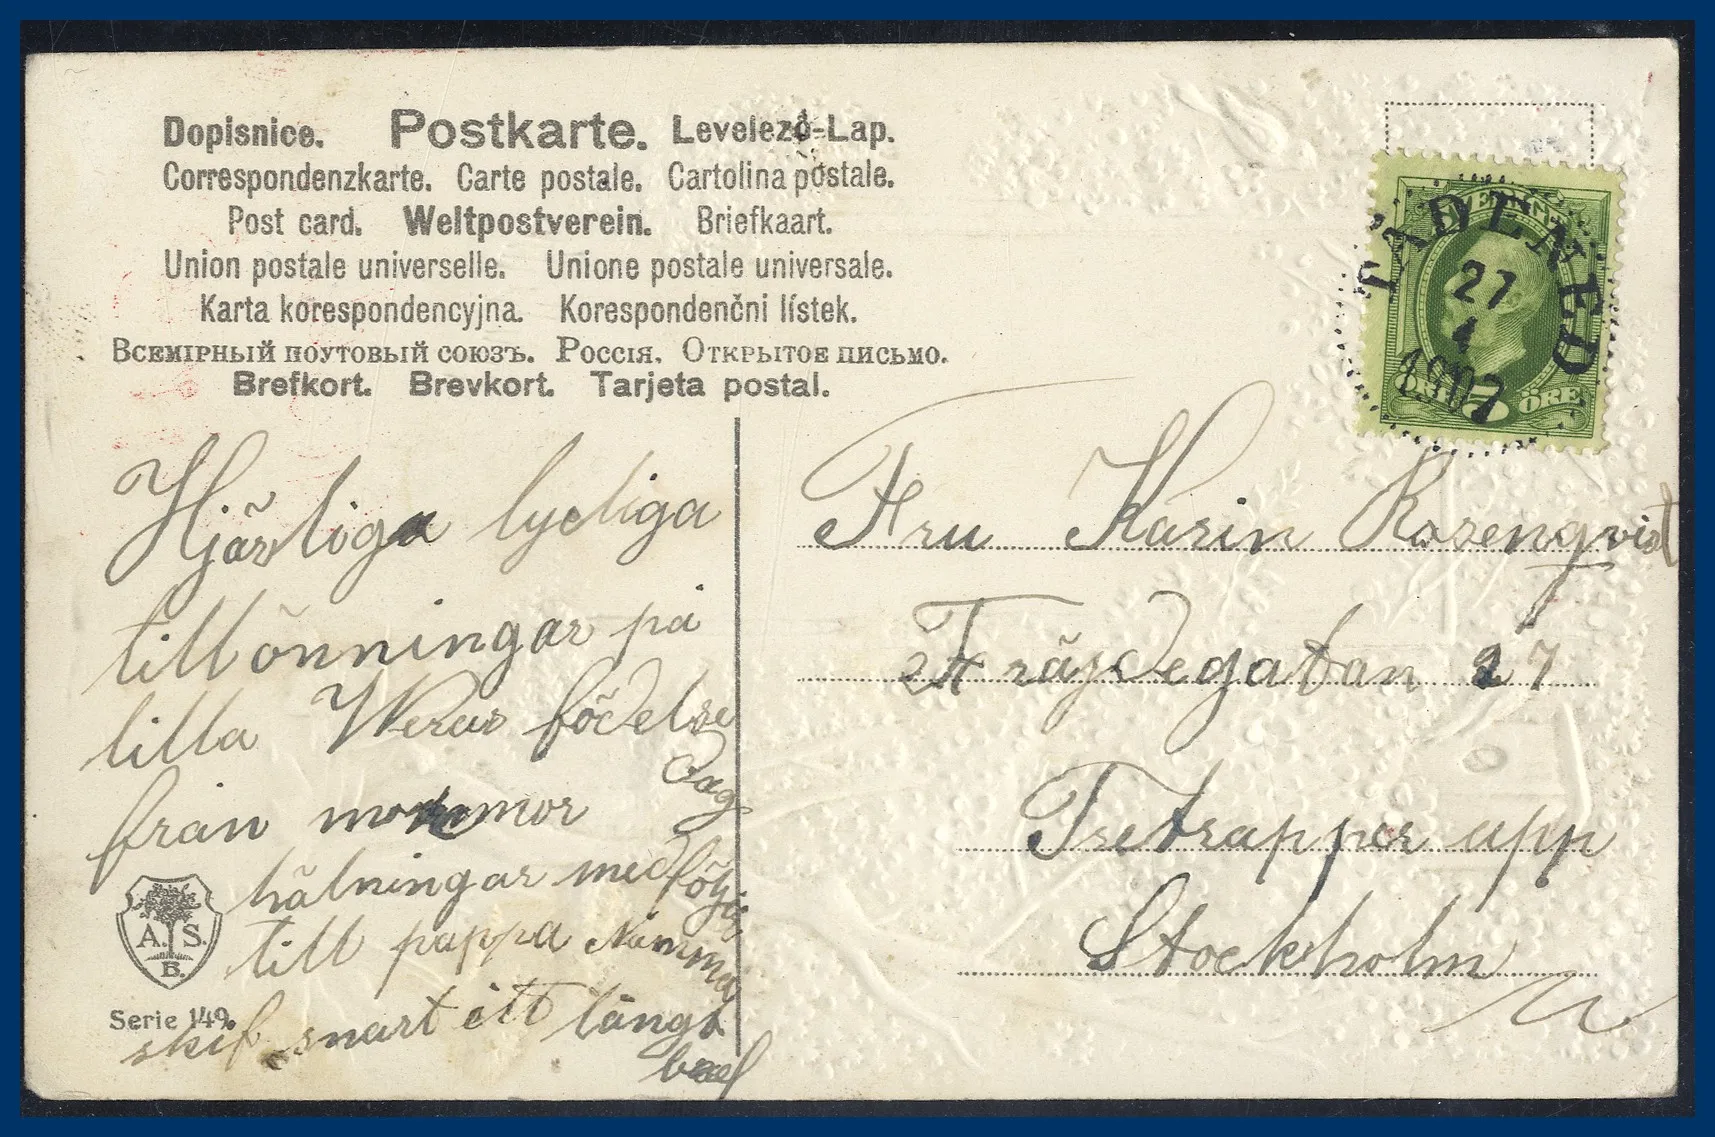 Dopisnice. Postkarte. Levelező-Lap.
Correspondenzkarte. Carte postale. Cartolina postale.
Post card. Weltpostverein. Briefkaart.
Union postale universelle. Unione postale universale.
Karta korespondencyjna. Korespondenční lístek.
Всемірный поутовый союзъ. Россія. Открытое письмо.
Brefkort. Brevkort. Tarjeta postal.
TADENED
27
4
1907
5 ÖRE
Hjärtliga lyckliga
till önningar på
lilla Weras födelse
dag
från mormor
hälningar medfölja
till pappa Mamma
skif snart ett långt
bref
A. S.
B.
Serie 149.
Fru Karin Rosenqvist
Fräjdegatan 27
Tretrapper upp
Stockholm